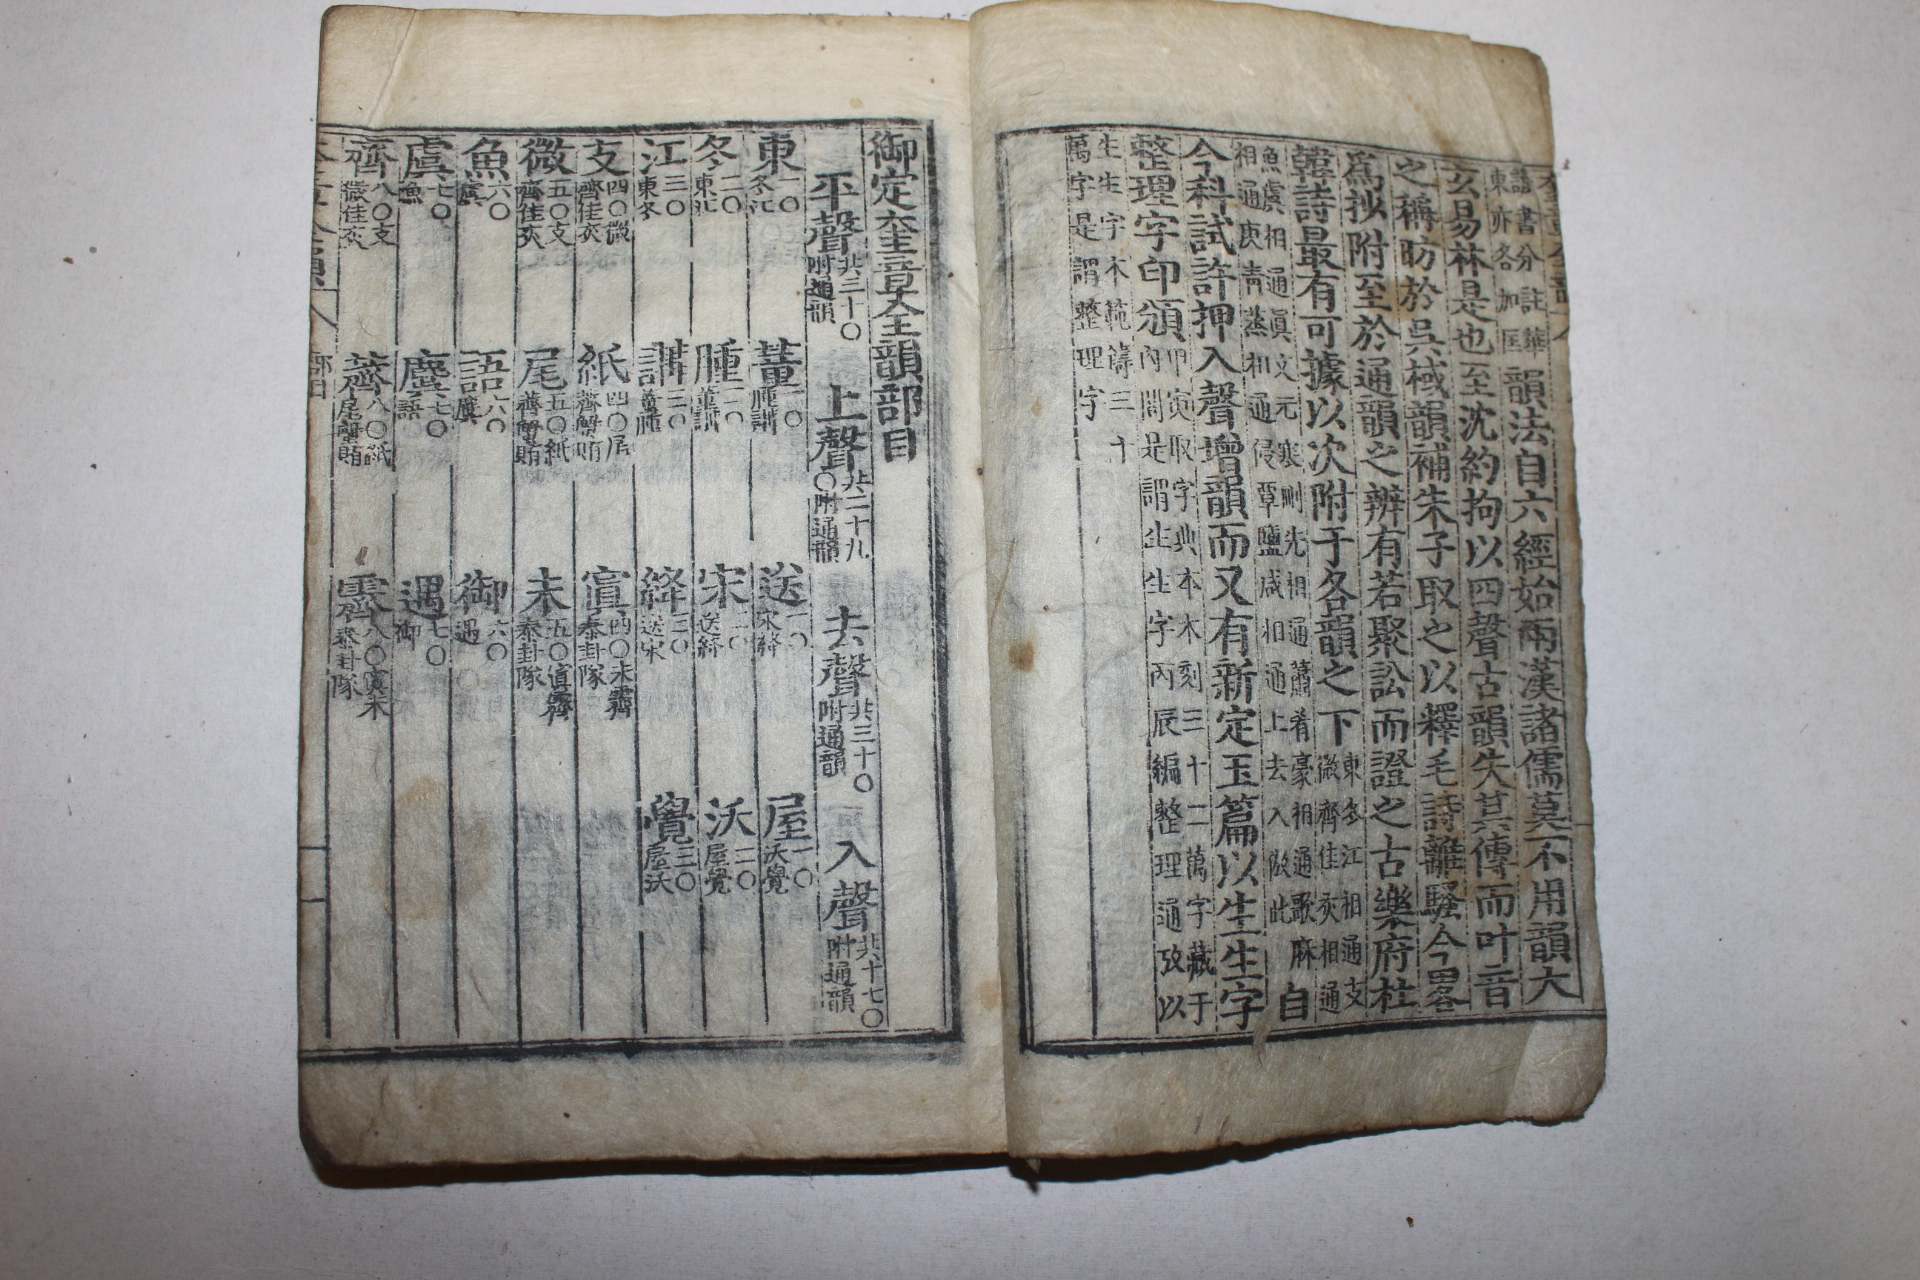 諺書分註華
東亦各加匡韻法自六經始兩漢諸儒莫不用韻大
玄易林是也至沈約拘以四聲古韻失其傳而叶音
之稱昉於吳棫韻補朱子取之以釋毛詩離騷今畧
爲抄附至於通韻之辨有若聚訟而證之古樂府杜
韓詩最有可據以次附于各韻之下東冬江相通支
微齊佳灰相通
魚虞相通眞文元寒刪先相通蕭肴豪相通歌麻
相通庚靑蒸相通侵覃鹽咸相通上去入倣此自
今科試許押入聲增韻而又有新定玉篇以生生字
整理字印頒甲寅取字典本木刻三十二萬字藏于
內閣是謂生生字丙辰編整理通攷以
生生字本範鑄三十
萬字是謂整理字
御定奎章全韻部目
平聲共三十○附通韻 上聲共二十九○附通韻 去聲共三十○附通韻 入聲共十七○附通韻
東一○冬江 董一○腫講 送一○宋絳 屋一○沃覺
冬二○東江 腫二○董講 宋二○送絳 沃二○屋覺
江三○東冬 講三○董腫 絳三○送宋 覺三○屋沃
支四○微齊佳灰 紙四○尾薺蟹賄 寘四○未霽泰卦隊
微五○支齊佳灰 尾五○紙薺蟹賄 未五○寘霽泰卦隊
魚六○虞 語六○麌 御六○遇
虞七○魚 麌七○語 遇七○御
齊八○支微佳灰 薺八○紙尾蟹賄 霽八○寘未泰卦隊